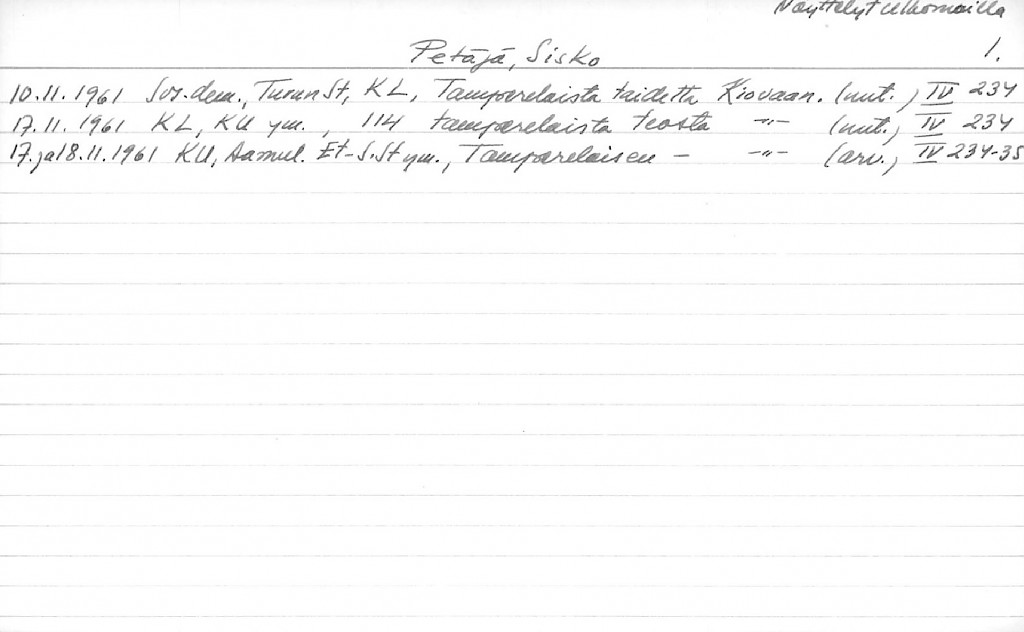 Näyttelyt ulkomailla
Petäjä, Sisko 1.
10.11.1961 Sos.dem., Turun St, KL, Tamperelaista taidetta Kiovaan. (uut.) IV 234
17.11.1961 KL, KU ym., 114 tamperelaista teosta -"- (uut.) IV 234
17.ja18.11.1961 KU, Aamul. Et-S.St ym., Tamperelaisen - -"- (arv.) IV 234-35